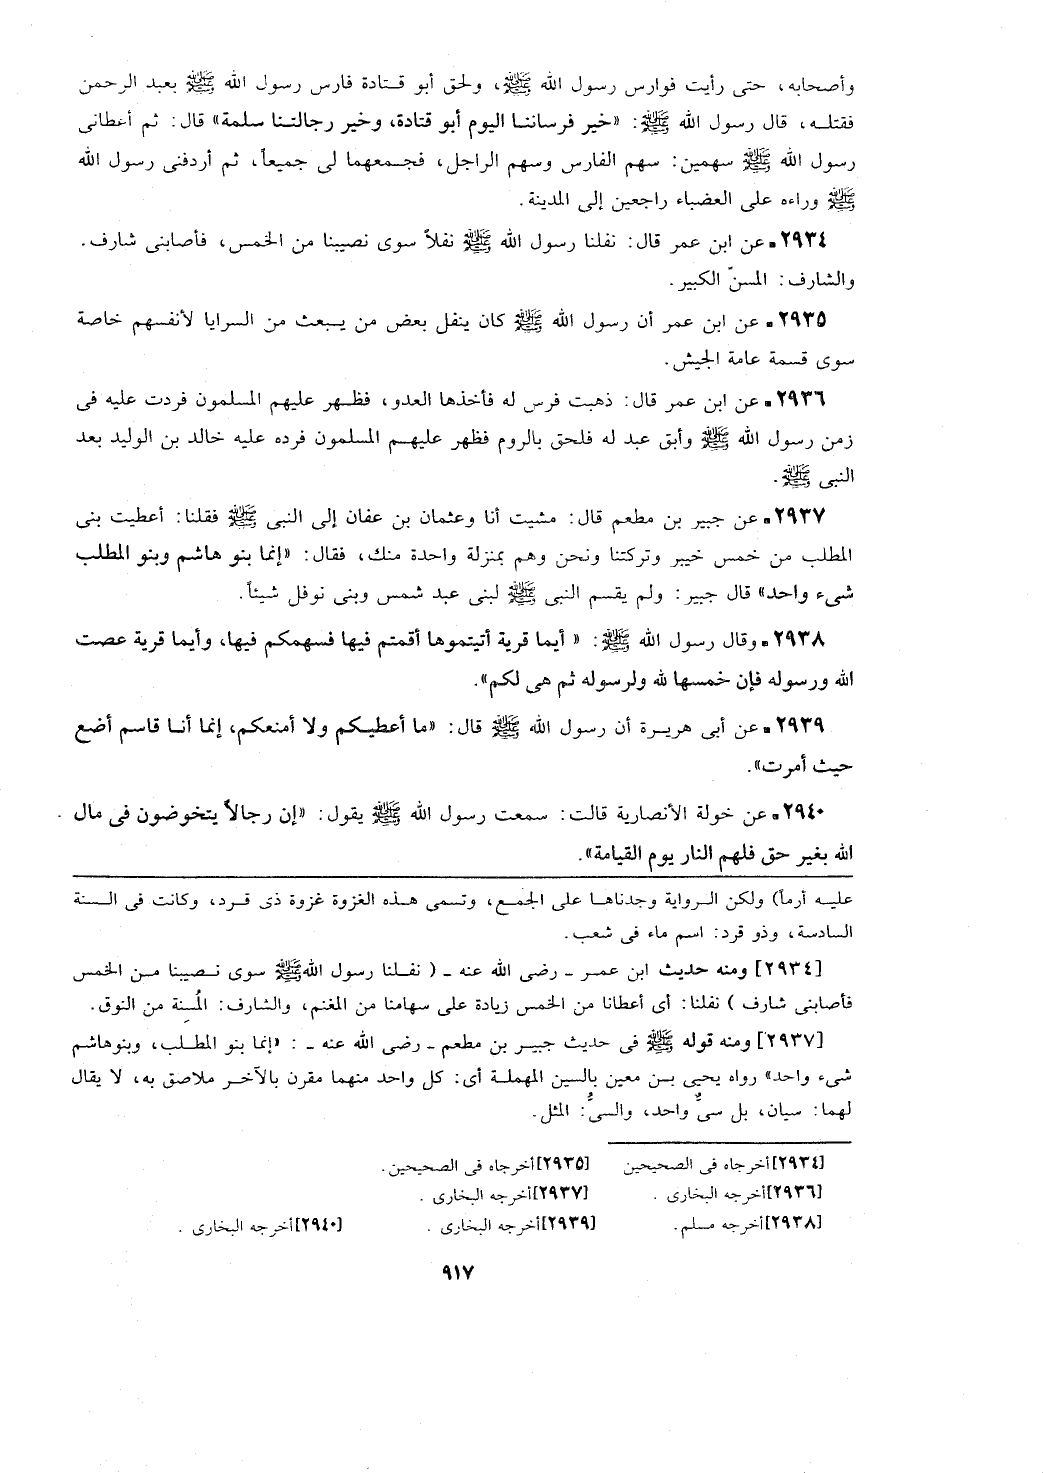 وأصحابه، حتى رأيت فوارس رسول الله ﷺ، ولحق أبو قتادة فارس رسول الله ﷺ بعبد الرحمن
فقتله، قال رسول الله ﷺ: «خير فرساننا اليوم أبو قتادة، وخير رجالتنا سلمة» قال: ثم أعطانى
رسول الله ﷺ سهمين: سهم الفارس وسهم الراجل، فجمعهما لى جميعاً، ثم أردفنى رسول الله
ﷺ وراءه على العضباء راجعين إلى المدينة.
٢٩٣٤ـ عن ابن عمر قال: نفلنا رسول الله ﷺ نفلاً سوى نصيبنا من الخمس، فأصابنى شارف.
والشارف: المسنّ الكبير.
٢٩٣٥ـ عن ابن عمر أن رسول الله ﷺ كان ينفل بعض من يبعث من السرايا لأنفسهم خاصة
سوى قسمة عامة الجيش.
٢٩٣٦ـ عن ابن عمر قال: ذهبت فرس له فأخذها العدو، فظهر عليهم المسلمون فردت عليه فى
زمن رسول الله ﷺ وأبق عبد له فلحق بالروم فظهر عليهم المسلمون فرده عليه خالد بن الوليد بعد
النبى ﷺ.
٢٩٣٧ـ عن جبير بن مطعم قال: مشيت أنا وعثمان بن عفان إلى النبى ﷺ فقلنا: أعطيت بنى
المطلب من خمس خيبر وتركتنا ونحن وهم بمنزلة واحدة منك، فقال: «إنما بنو هاشم وبنو المطلب
شىء واحد» قال جبير: ولم يقسم النبى ﷺ لبنى عبد شمس وبنى نوفل شيئاً.
٢٩٣٨ـ وقال رسول الله ﷺ: « أيما قرية أتيتموها أقمتم فيها فسهمكم فيها، وأيما قرية عصت
الله ورسوله فإن خمسها لله ولرسوله ثم هى لكم».
٢٩٣٩ـ عن أبى هريرة أن رسول الله ﷺ قال: «ما أعطيكم ولا أمنعكم، إنما أنا قاسم أضع
حيث أمرت».
٢٩٤٠ـ عن خولة الأنصارية قالت: سمعت رسول الله ﷺ يقول: «إن رجالاً يتخوضون فى مال
الله بغير حق فلهم النار يوم القيامة».
عليه أرماً) ولكن الرواية وجدناها على الجمع، وتسمى هذه الغزوة غزوة ذى قرد، وكانت فى السنة
السادسة، وذو قرد: اسم ماء فى شعب.
[٢٩٣٤] ومنه حديث ابن عمر ـ رضى الله عنه ـ ( نفلنا رسول اللهﷺ سوى نصيبنا من الخمس
فأصابنى شارف ) نفلنا: أى أعطانا من الخمس زيادة على سهامنا من المغنم، والشارف: المُسِنة من النوق.
[٢٩٣٧] ومنه قوله ﷺ فى حديث جبير بن مطعم ـ رضى الله عنه ـ : «إنما بنو المطلب، وبنوهاشم
شىء واحد» رواه يحيى بن معين بالسين المهملة أى: كل واحد منهما مقرن بالآخر ملاصق به، لا يقال
لهما: سيان، بل سىٌّ واحد، والسىُّ: المثل.
[٢٩٣٤] أخرجاه فى الصحيحين [٢٩٣٥] أخرجاه فى الصحيحين.
[٢٩٣٦] أخرجه البخارى . [٢٩٣٧] أخرجه البخارى .
[٢٩٣٨] أخرجه مسلم. [٢٩٣٩] أخرجه البخارى . [٢٩٤٠] أخرجه البخارى .
٩١٧